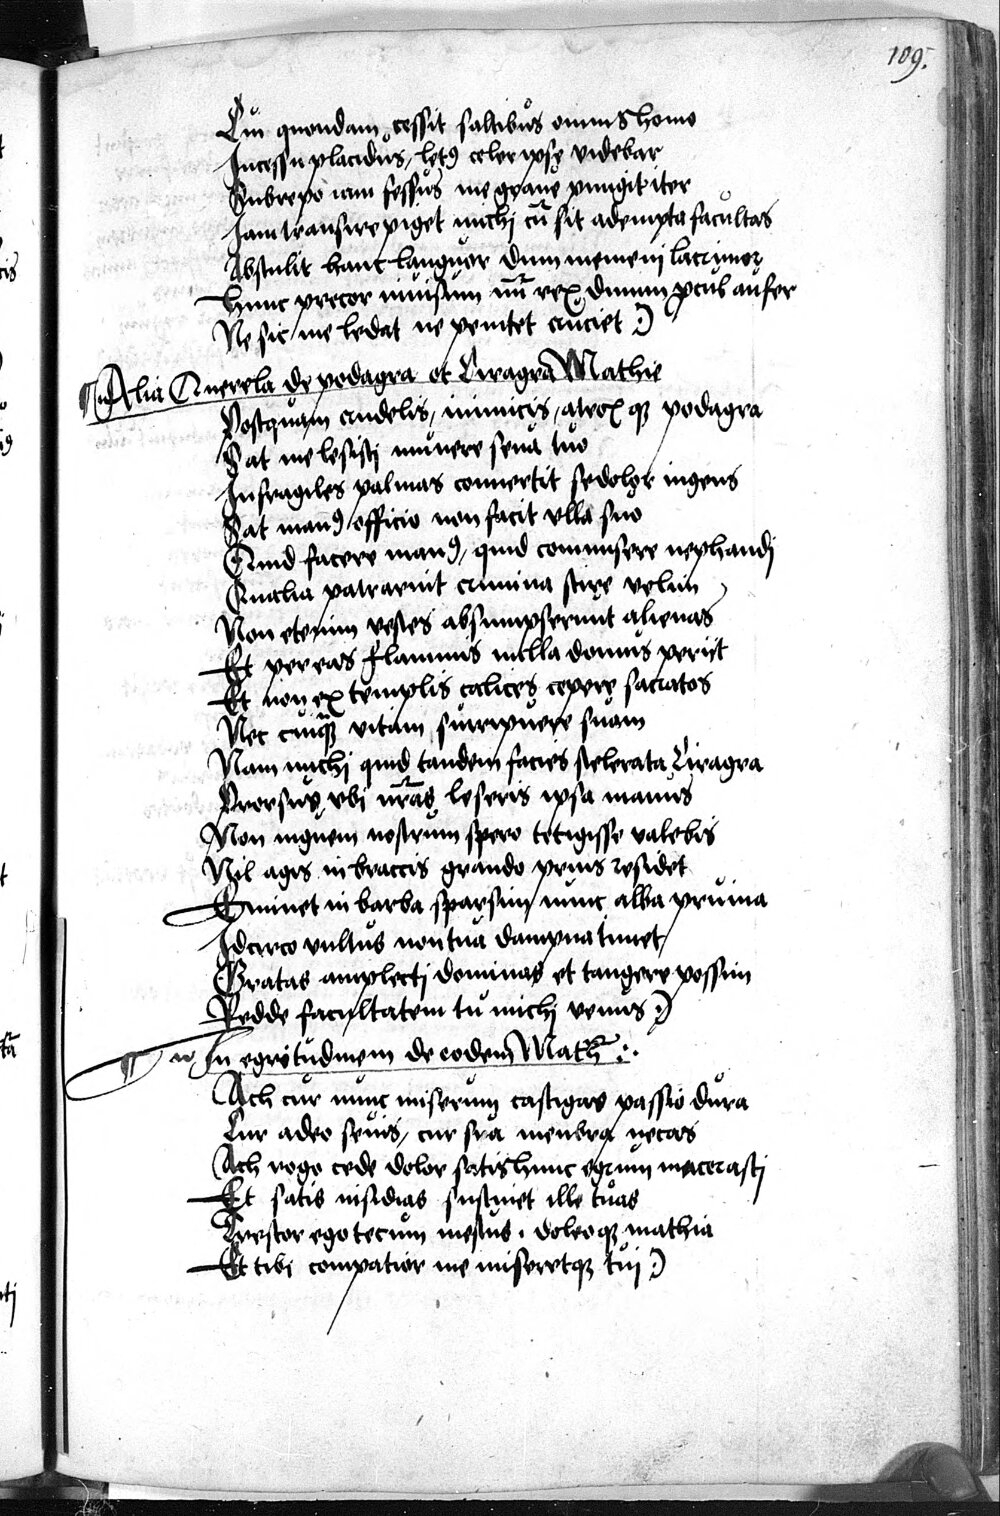 109.
Cui quondam cessit saltibus omnis homo
Incessu placidus, letꝰ celer ipse videbar
Subrepo iam fessus me graue pungit iter
Iam transire piget michi cū sit adempta facultas
Abstulit hanc languor dum memini lacrimor
Hunc precor inuisum nr̄ rex diuum ꝓcul aufer
Ne sic me ledat ne penitet cruciet :)
Alia Querela de podagra et Ciragra Mathie
Postquam crudelis, inimicis, atrox qꝫ podagra
Sat me lesisti munere seua tuo
In fragiles palmas conuertit se dolor ingens
Sat manꝰ officio non facit vlla suo
Quid facere manꝰ, quid commisere nephandi
Qualia patrarint crimina scire velim
Non etenim vestes absumpserunt alienas
Et per eas flammis nulla domus perijt
Et non ex templis calices cepere sacratos
Nec cuiqꝫ vitam surripuere suam
Nam michi quid tandem facies scelerata Ciragra
Prorsus vbi nr̄as leseris ipsa manus
Non inguem nostrum spero tetigisse valebis
Nil agis in braccis grando prius residet
Eminet in barba sparsim nunc alba pruina
Idcirco vultus non tua dampna timet
Gratas amplecti dominas et tangere possim
Redde facultatem tu michi venus :)
In egritudinem de eodem Math :.
Ach cur nunc miserum castigas passio dura
Cur adeo seuis, cur sua menbra necas
Ach rogo cede dolor satis hunc egrum macerasti
Et satis insidias sustinet ille tuas
Tristor ego tecum mestus. doleo qꝫ mathia
Et tibi compatior me miseretqꝫ tui :)